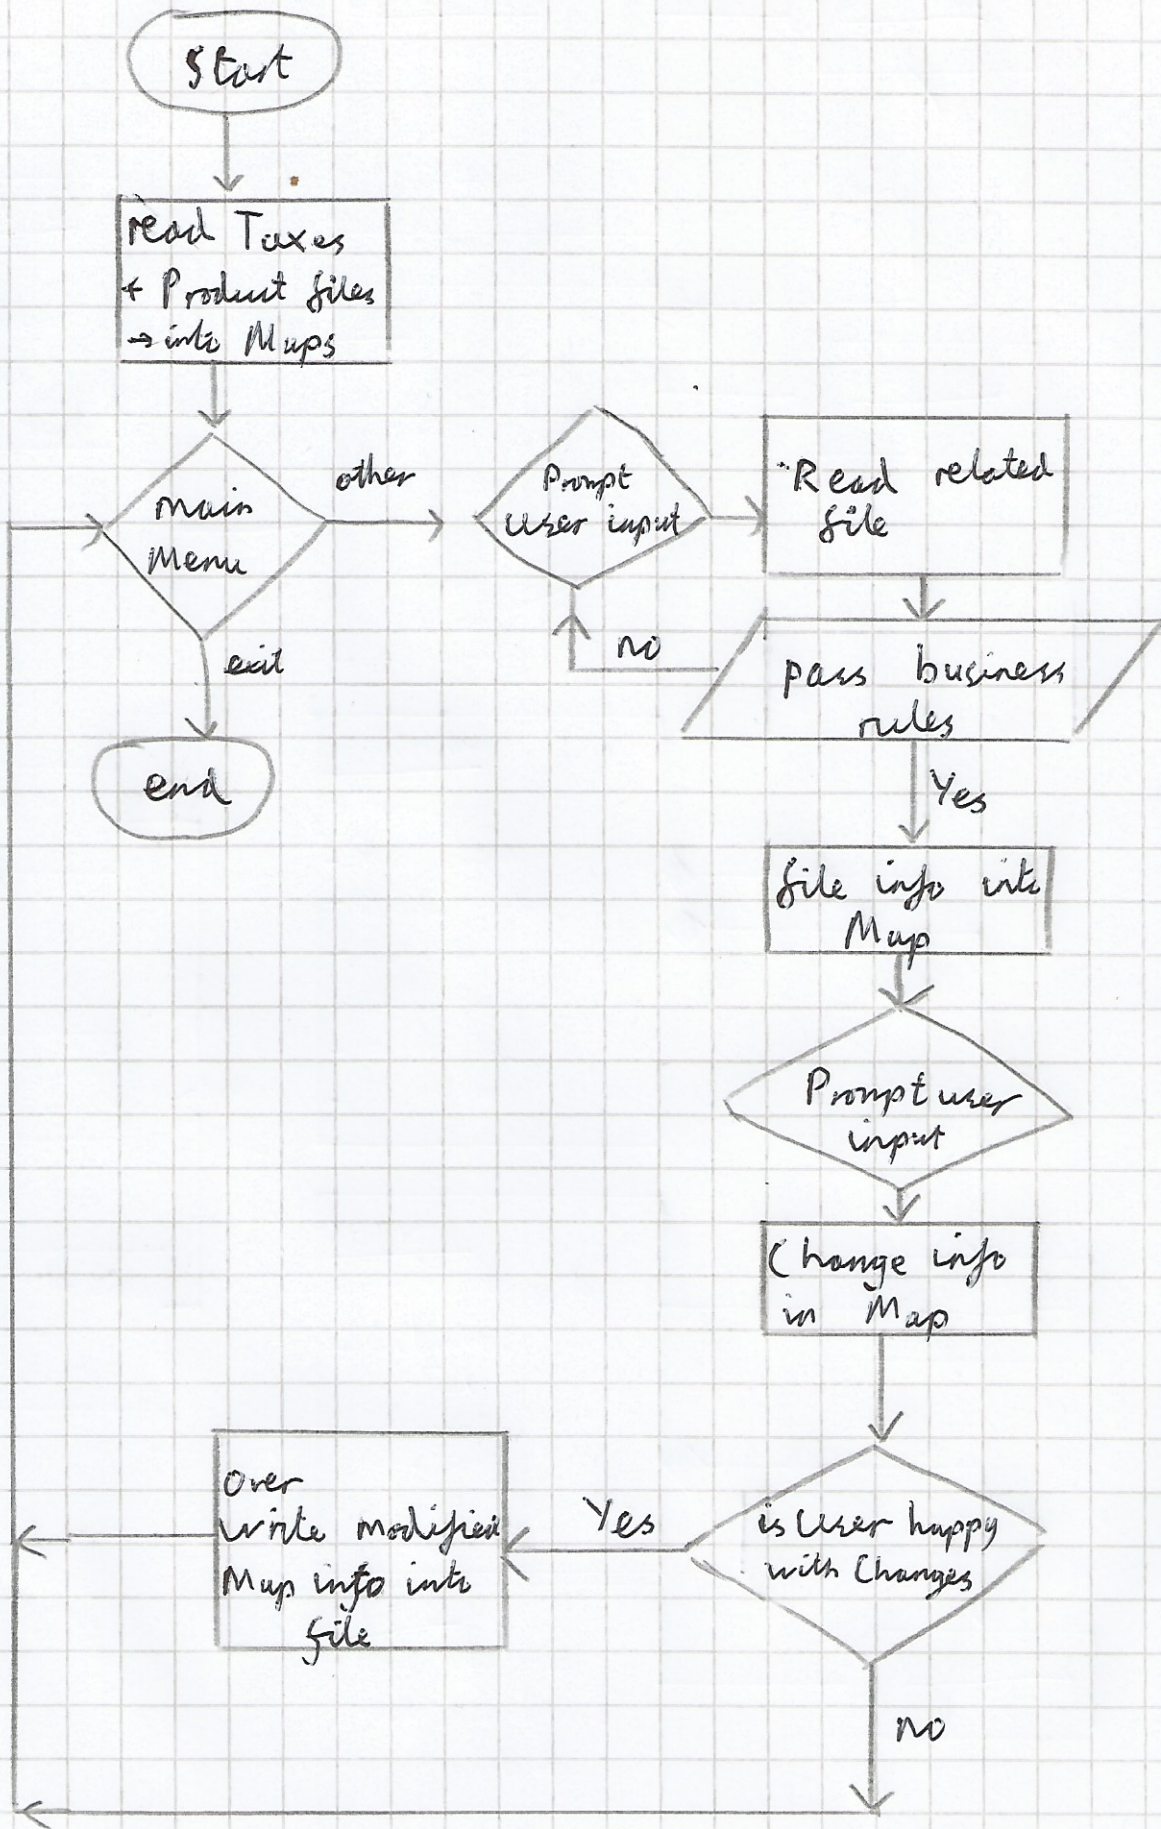 Start
read Taxes
+ Product files
→ into Maps
main
Menu
other
exit
end
Prompt
user input
Read related
file
no
pass business
rules
Yes
file info into
Map
Prompt user
input
Change info
in Map
is User happy
with Changes
Yes
Over
write modified
Map info into
file
no